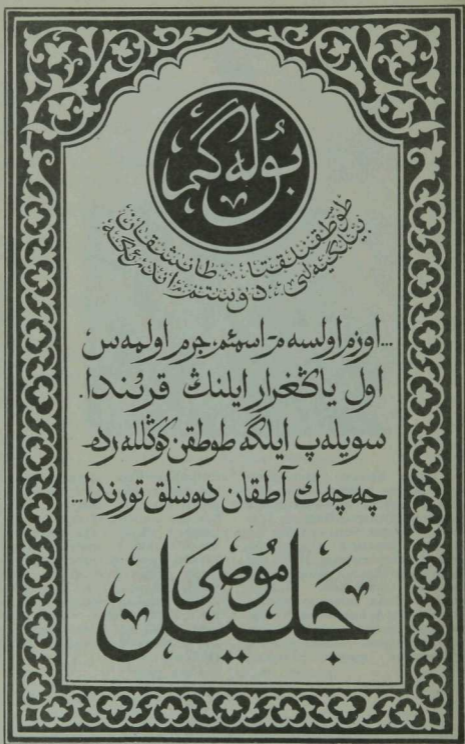 بوُله‌گم
طوطقنلقتا طانشقان
بيلگيه‌لی دوستم اندرئگه
...اوزم اولسه‌م- اسمئم، جرم اولمه‌س
اول ياڭغرار ايلنڭ قرُندا.
سويله‌پ ايلگه طوطقن كوڭلله‌رده
چه‌چه‌ك آطقان دوسلق تورندا...
موُصی
جَليل